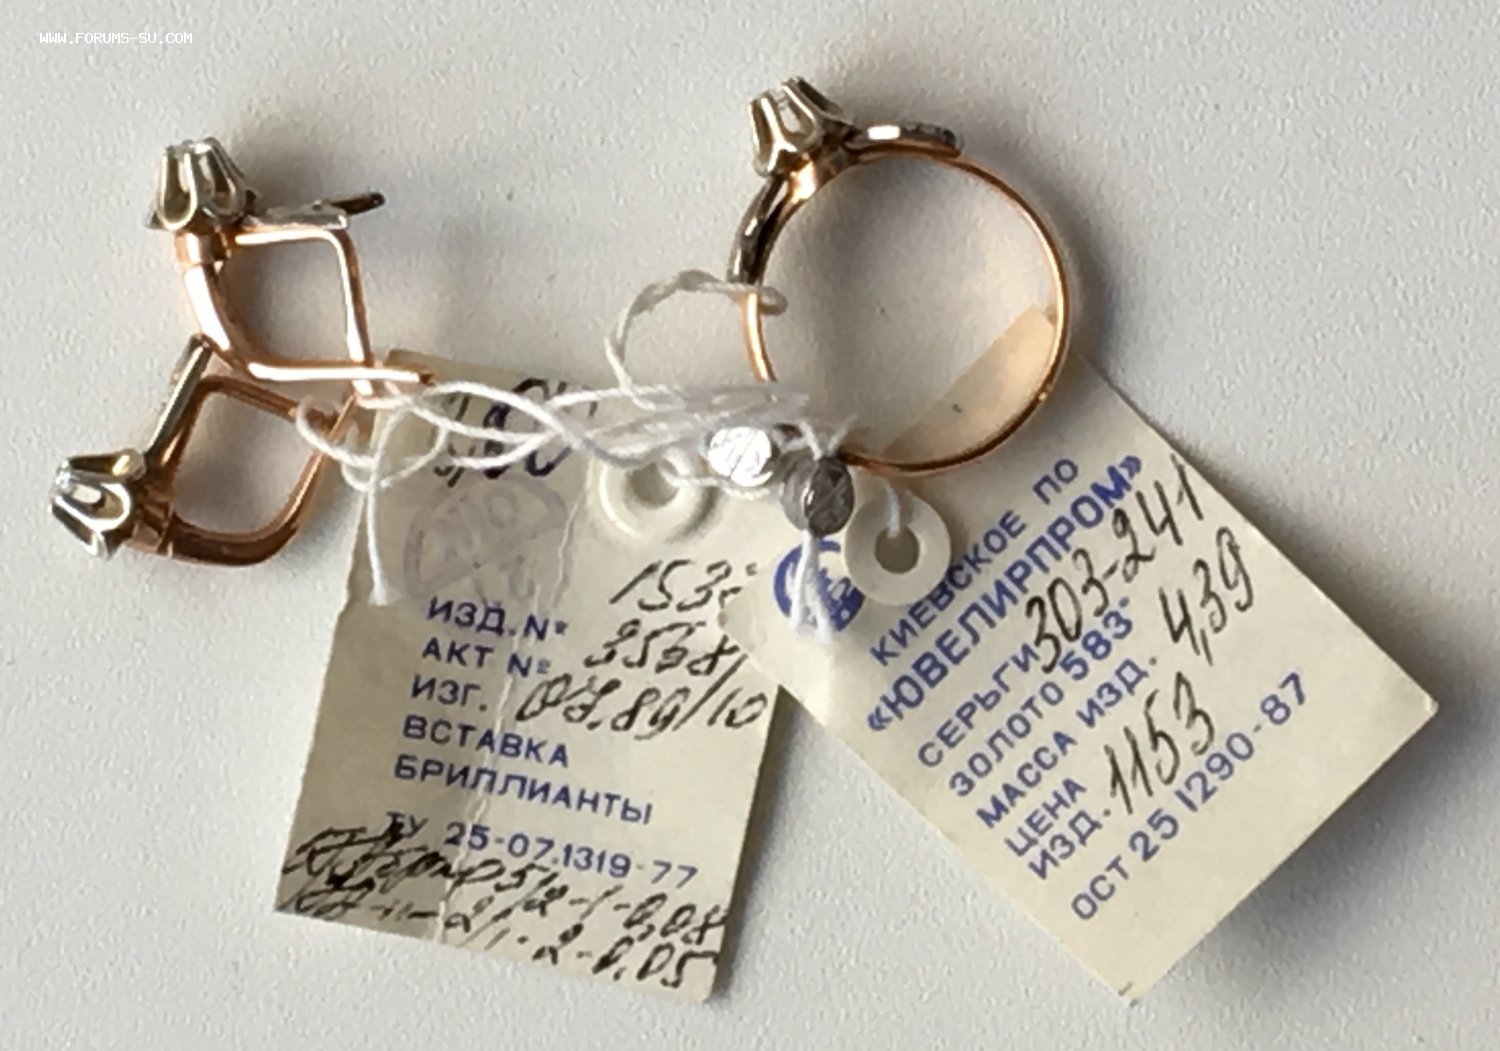 WWW.FORUMS-SU.COM
ИЗД. №
АКТ №
ИЗГ. 07.89/10
ВСТАВКА
БРИЛЛИАНТЫ
ТУ 25-07.1319-77
2-0,05
КИЕВСКОЕ ПО
«ЮВЕЛИРПРОМ»
СЕРЬГИ 303-241
ЗОЛОТО 583°
МАССА ИЗД. 4,39
ЦЕНА
ИЗД. 1153
ОСТ 25 1290-87